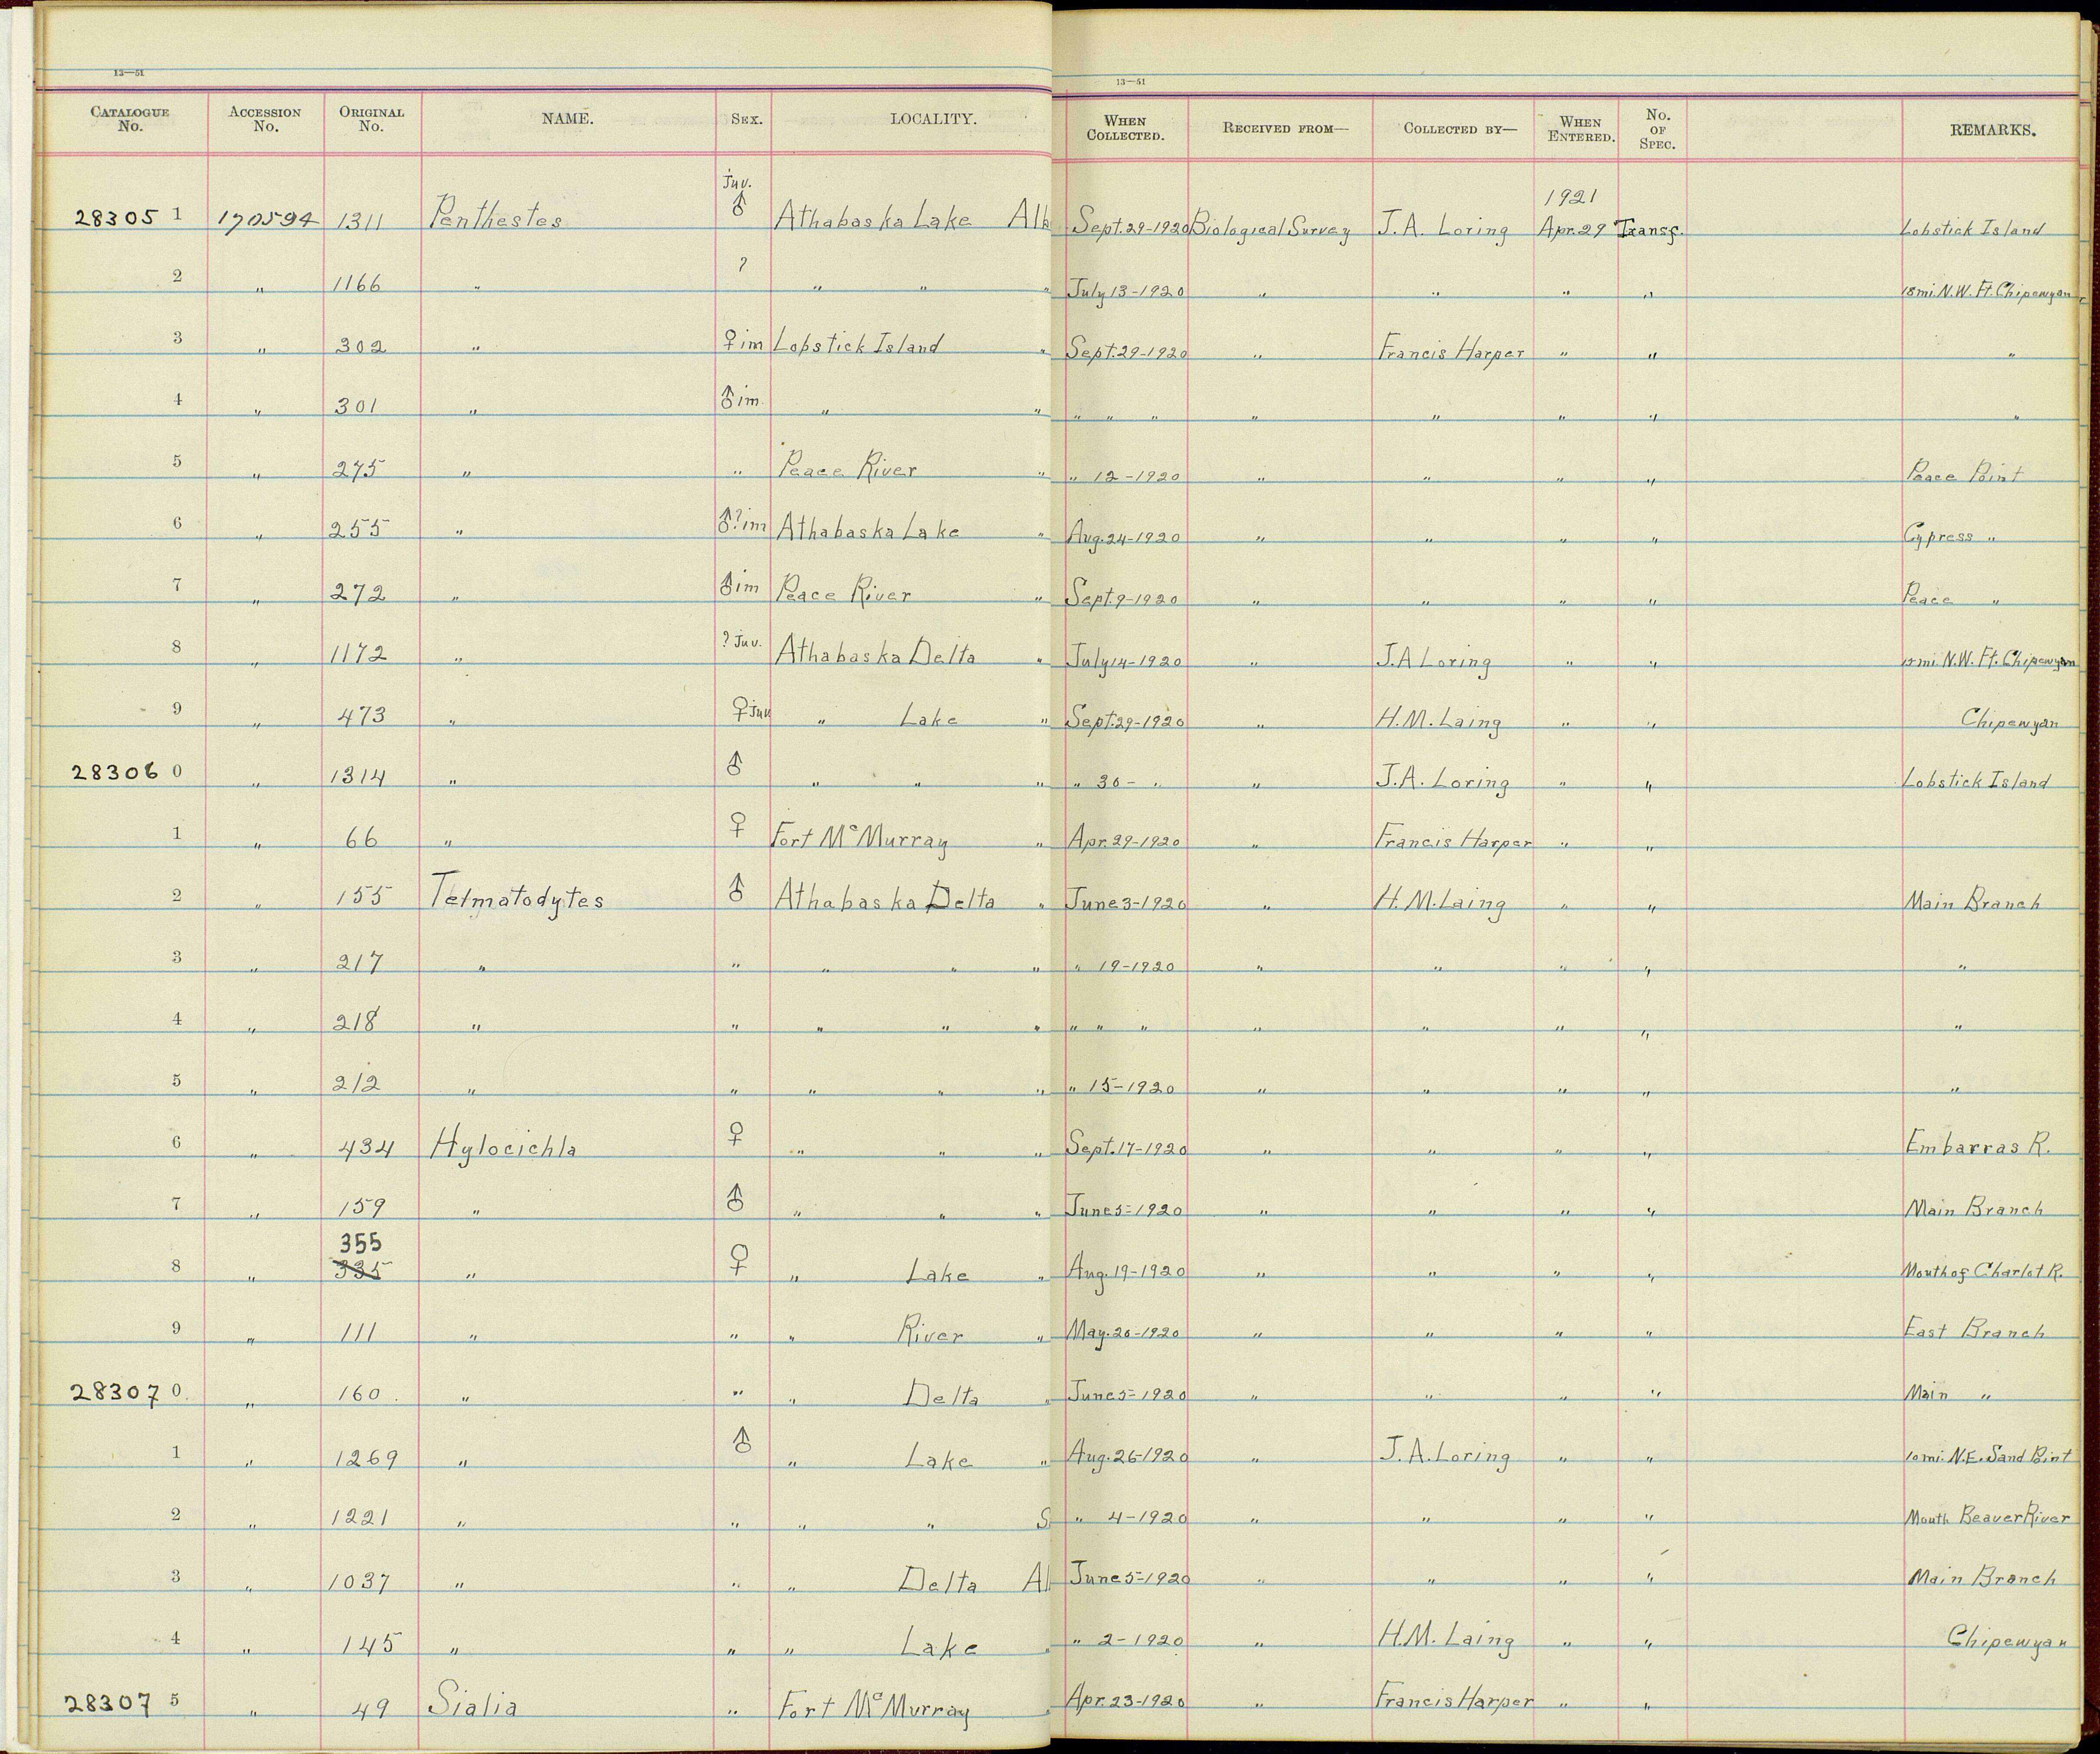 13—51 13—51
CATALOGUE No. ACCESSION No. ORIGINAL No. NAME. SEX. LOCALITY. WHEN COLLECTED. RECEIVED FROM— COLLECTED BY— WHEN ENTERED. No. OF SPEC. REMARKS.
28305 1 170594 1311 Penthestes Juv. ♂ Athabaska Lake Alb Sept. 29-1920 Biological Survey J.A. Loring 1921 Apr. 29 Transf. Lobstick Island
2 " 1166 " ? " " " July 13-1920 " " " " 18 mi. N.W. Ft. Chipewyan
3 " 302 " ♀ im Lobstick Island " Sept. 29-1920 " Francis Harper " " "
4 " 301 " ♂ im. " " " " " " " " " "
5 " 275 " " Peace River " " 12-1920 " " " " Peace Point
6 " 255 " ♂? im Athabaska Lake " Aug. 24-1920 " " " " Cypress "
7 " 272 " ♂ im Peace River " Sept. 9-1920 " " " " Peace "
8 " 1172 " ? Juv. Athabaska Delta " July 14-1920 " J.A Loring " " mi. N.W. Ft. Chipewyan
9 " 473 " ♀ Juv " Lake " Sept. 29-1920 " H.M. Laing " " Chipewyan
28306 0 " 1314 " ♂ " " " " 30- " " J.A. Loring " " Lobstick Island
1 " 66 " ♀ Fort McMurray " Apr. 29-1920 " Francis Harper " "
2 " 155 Telmatodytes ♂ Athabaska Delta " June 3-1920 " H.M. Laing " " Main Branch
3 " 217 " " " " " " 19-1920 " " " " "
4 " 218 " " " " " " " " " " " " "
5 " 212 " " " " " " 15-1920 " " " " "
6 " 434 Hylocichla ♀ " " " Sept. 17-1920 " " " " Embarras R.
7 " 159 " ♂ " " " June 5-1920 " " " " Main Branch
355
8 " 335 " ♀ " Lake " Aug. 19-1920 " " " " Mouth of Charlot R.
9 " 111 " " " River " May. 20-1920 " " " " East Branch
28307 0. " 160. " " " Delta " June 5-1920 " " " " Main "
1 " 1269 " ♂ " Lake " Aug. 26-1920 " J.A. Loring " " 10 mi. N.E. Sand Point
2 " 1221 " " " " S " 4-1920 " " " " Mouth Beaver River
3 " 1037 " " " Delta Al June 5-1920 " " " " Main Branch
4 " 145 " " " Lake " " 2-1920 " H.M. Laing " " Chipewyan
28307 5 " 49 Sialia " Fort McMurray " Apr. 23-1920 " Francis Harper " "